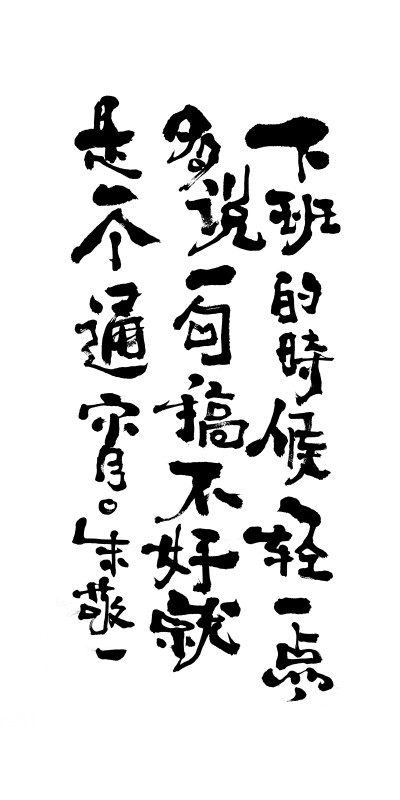 下班的時候轻一点
多说一句搞不好就
是一个通宵。朱敬一